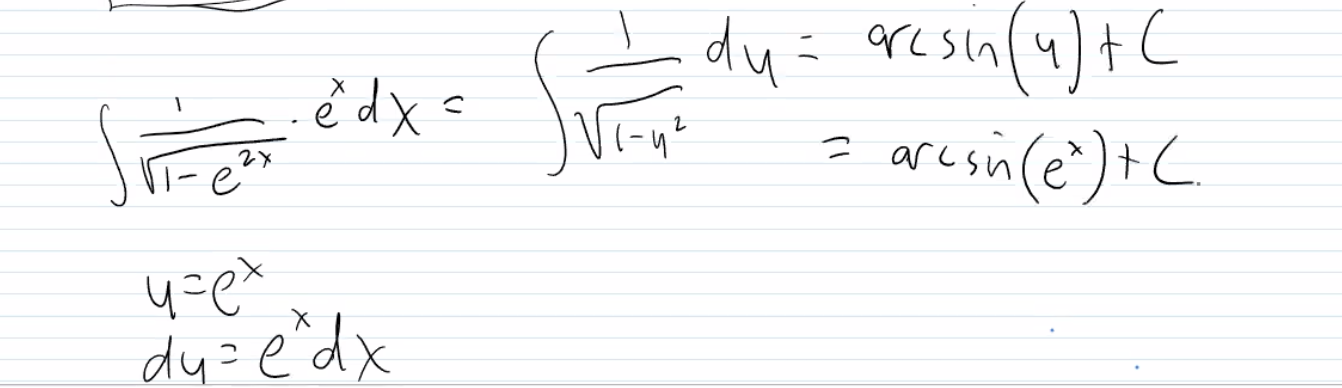 ∫ 1/√(1-e^(2x)) · e^x dx = ∫ 1/√(1-u²) du = arcsin(u) + C
= arcsin(e^x) + C.
u = e^x
du = e^x dx